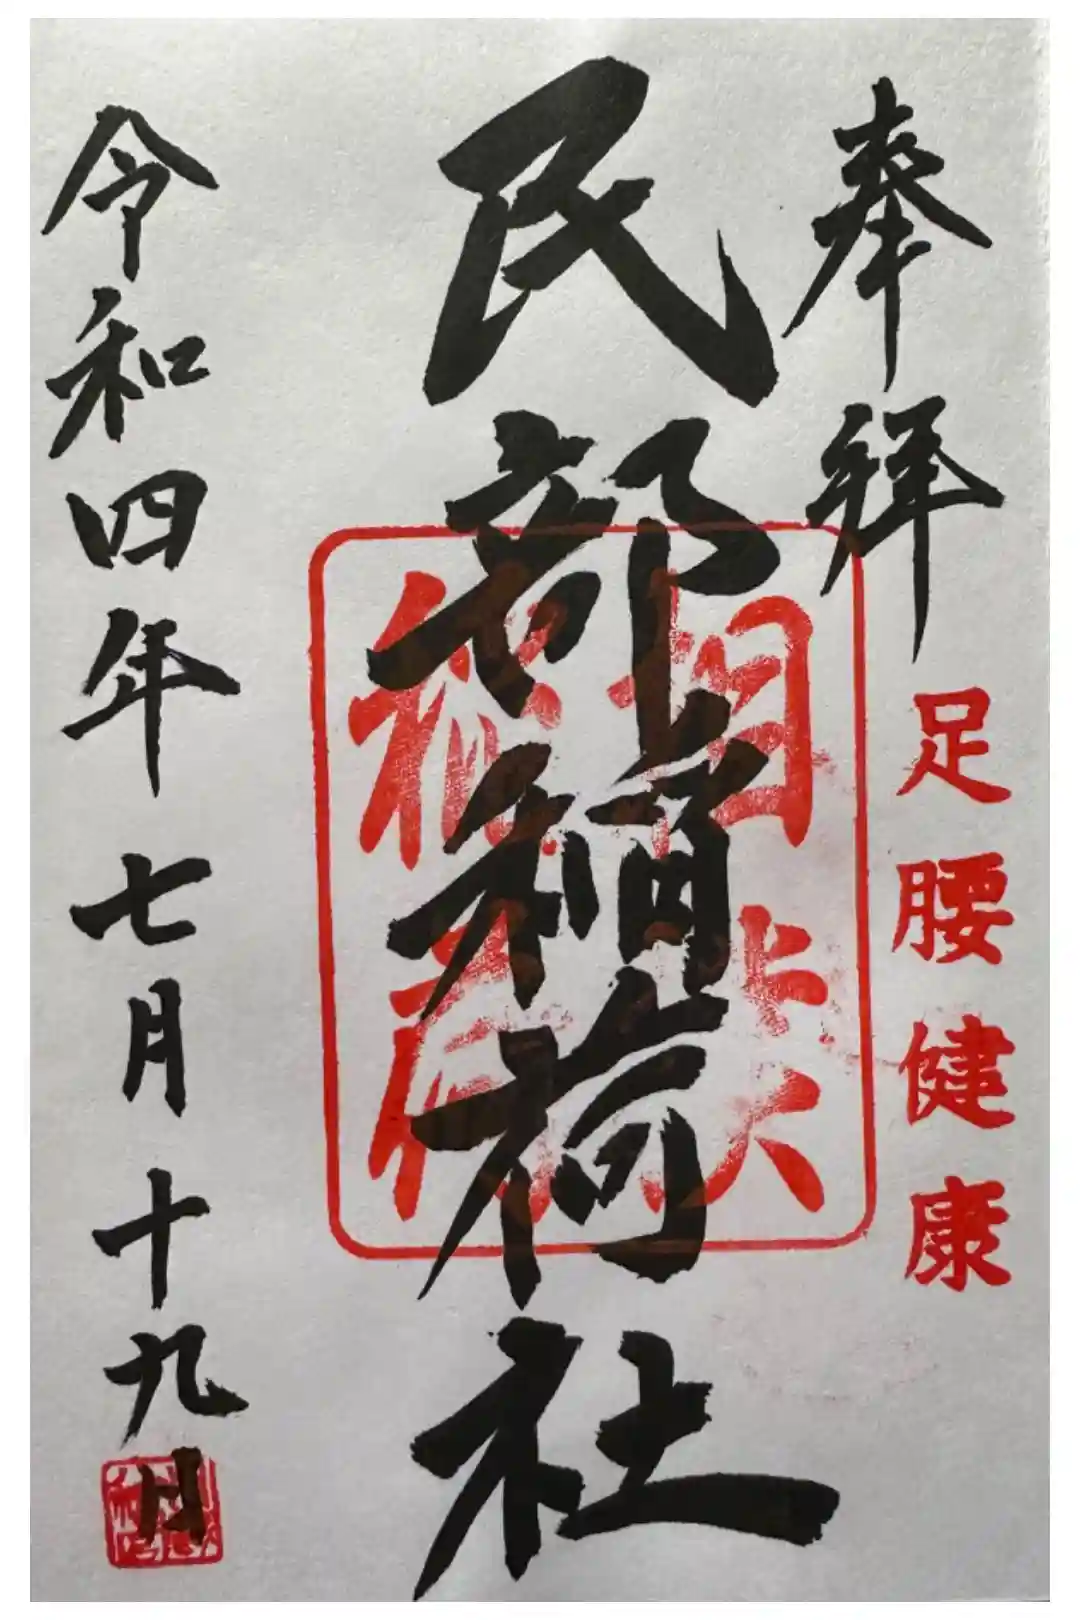 奉拝
足腰健康
民部稲荷社
相模
稲荷
令和四年七月十九日